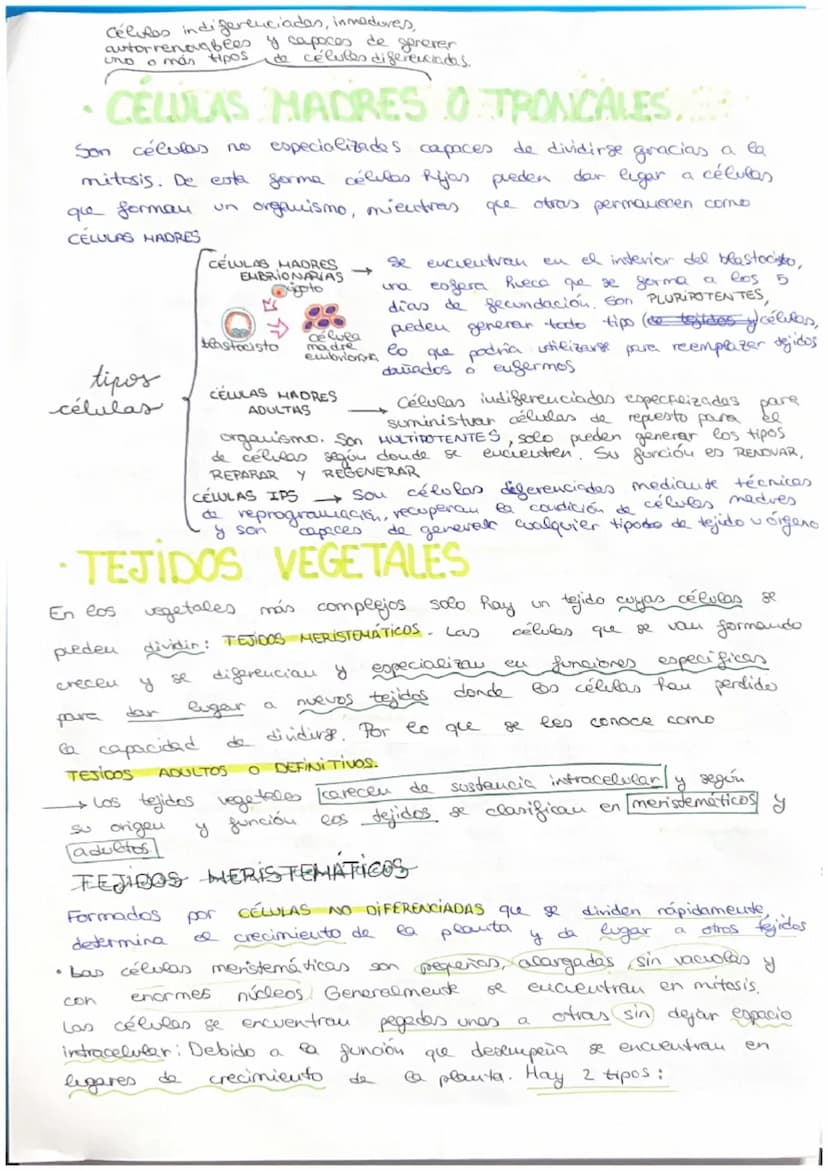 Células indiferenciadas, inmaduras,
autorrenovables y capaces de generar
uno o más tipos de células diferenciadas.
· CÉLULAS MADRES O TRONCALES.
Son células no especializadas capaces de dividirse gracias a la
mitosis. De esta forma células hijas pueden dar lugar a células
que forman un organismo, mientras que otras permanecen como
CÉLULAS MADRES
tipos
células
CÉLULAS MADRES
EMBRIONARIAS
zigoto
blastocisto
célula
madre
embrionaria
→ Se encuentran en el interior del blastocisto,
una esfera hueca que se forma a los 5
días de fecundación. Son PLURIPOTENTES,
pueden generar todo tipo (de tejidos y) células,
lo que podría utilizarse para reemplazar tejidos
dañados o enfermos
CÉLULAS MADRES
ADULTAS
→ Células indiferenciadas especializadas para
suministrar células de repuesto para el
organismo. Son MULTIPOTENTES, solo pueden generar los tipos
de células según donde se encuentren. Su función es RENOVAR,
REPARAR Y REGENERAR
CÉLULAS IPS → Son células diferenciadas mediante técnicas
de reprogramación, recuperan la condición de células madres
y son capaces de generar cualquier tipo de tejido u órgano
· TEJIDOS VEGETALES
En los vegetales más complejos solo hay un tejido cuyas células se
pueden dividir: TEJIDOS MERISTEMÁTICOS. Las células que se van formando
crecen y se diferencian y especializan en funciones específicas
para dar lugar a nuevos tejidos donde las células han perdido
la capacidad de dividirse. Por lo que se les conoce como
TEJIDOS ADULTOS O DEFINITIVOS.
→ Los tejidos vegetales carecen de sustancia intracelular y según
su origen y función los tejidos se clasifican en meristemáticos y
adultos
TEJIDOS MERISTEMÁTICOS
Formados por CÉLULAS NO DIFERENCIADAS que se dividen rápidamente,
determina el crecimiento de la planta y da lugar a otros tejidos
· Las células meristemáticas son pequeñas, alargadas, sin vacuolas y
con enormes núcleos. Generalmente se encuentran en mitosis.
Las células se encuentran pegadas unas a otras sin dejar espacio
intracelular: Debido a la función que desempeña se encuentran en
lugares de crecimiento de la planta. Hay 2 tipos: